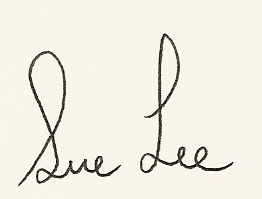 Sue Lee